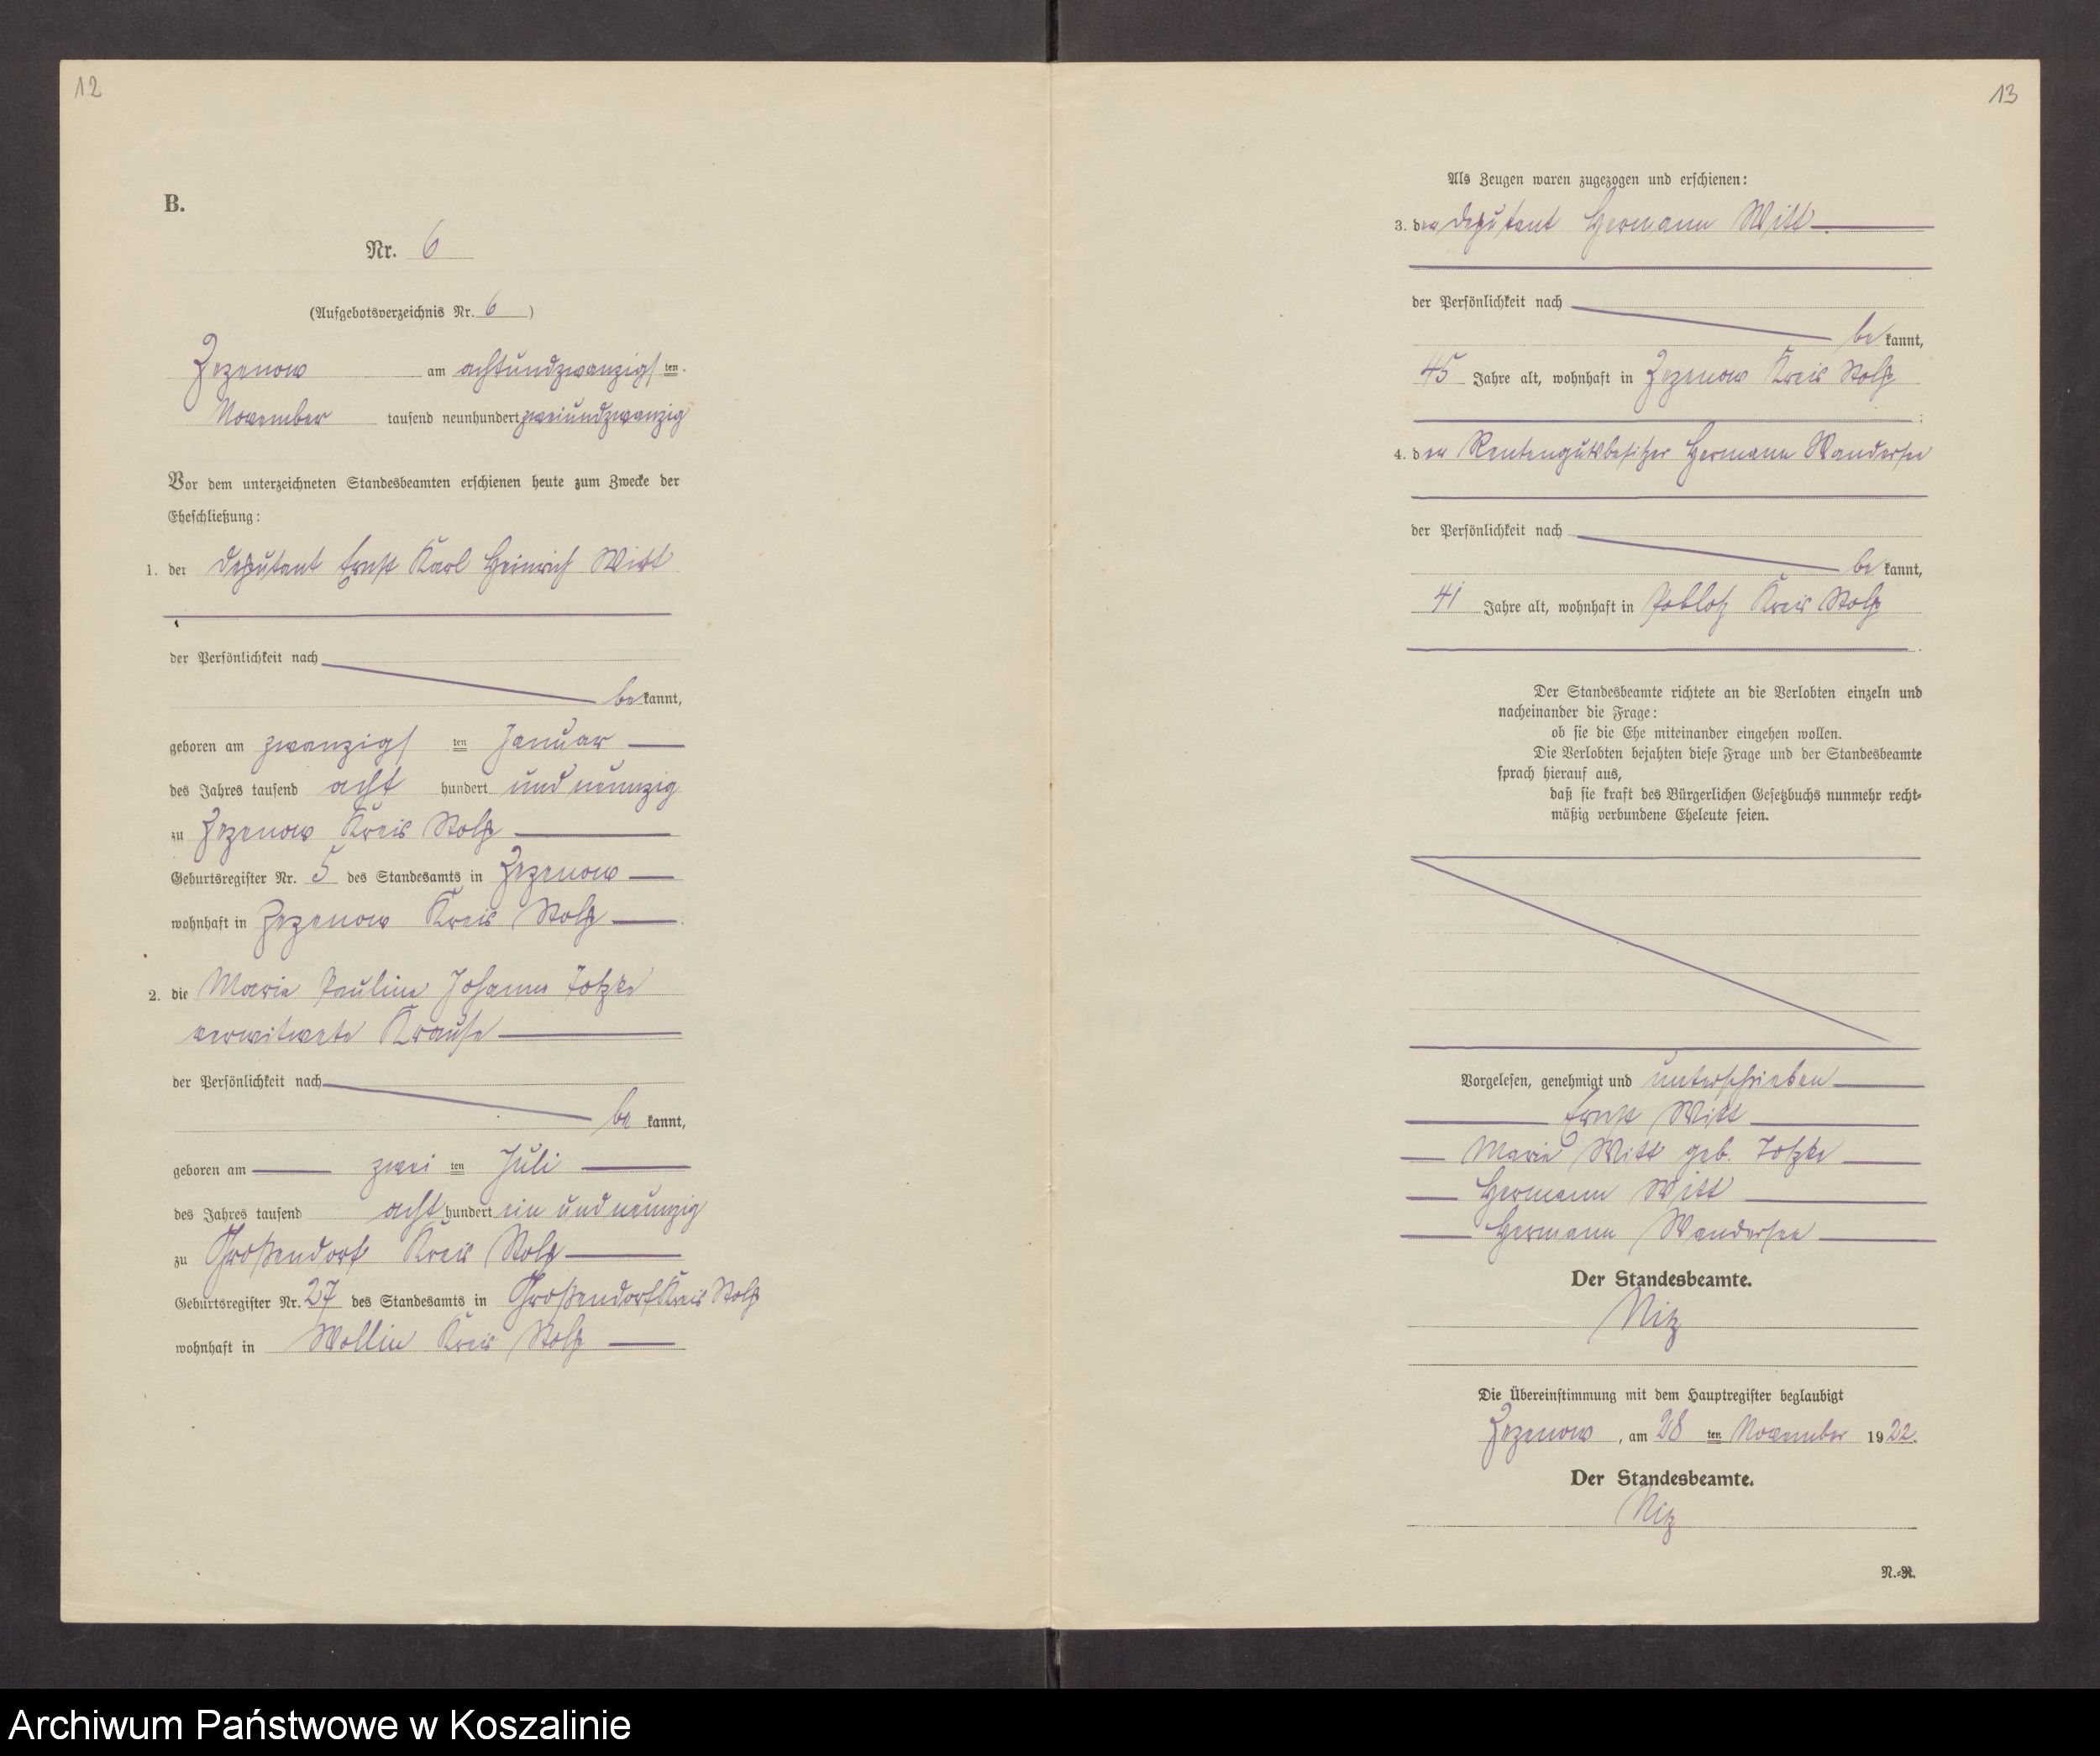 12
B.
Nr. 6
(Aufgebotsverzeichnis Nr. 6)
Zezenow am achtundzwanzigsten
November tausend neunhundert zweiundzwanzig
Vor dem unterzeichneten Standesbeamten erschienen heute zum Zwecke der
Eheschließung:
1. der Deputant Ernst Karl Heinrich Witt
der Persönlichkeit nach
bekannt,
geboren am zwanzigsten Januar
des Jahres tausend acht hundert und neunzig
zu Zezenow Kreis Stolp
Geburtsregister Nr. 5 des Standesamts in Zezenow
wohnhaft in Zezenow Kreis Stolp.
2. die Marie Pauline Johanne Totzke
verwitwete Krause
der Persönlichkeit nach
be kannt,
geboren am zwei ten Juli
des Jahres tausend acht hundert ein und neunzig
zu Großendorf Kreis Stolp
Geburtsregister Nr. 27 des Standesamts in Großendorf Kreis Stolp
wohnhaft in Wollin Kreis Stolp
13
Als Zeugen waren zugezogen und erschienen:
3. der Deputant Hermann Witt
der Persönlichkeit nach
be kannt,
45 Jahre alt, wohnhaft in Zezenow Kreis Stolp
;
4. der Rentengutsbesitzer Hermann Wandersee
der Persönlichkeit nach
be kannt,
41 Jahre alt, wohnhaft in Poblotz Kreis Stolp
.
Der Standesbeamte richtete an die Verlobten einzeln und
nacheinander die Frage:
ob sie die Ehe miteinander eingehen wollen.
Die Verlobten bejahten diese Frage und der Standesbeamte
sprach hierauf aus,
daß sie kraft des Bürgerlichen Gesetzbuchs nunmehr recht-
mäßig verbundene Eheleute seien.
Vorgelesen, genehmigt und unterschrieben
Ernst Witt
Marie Witt geb. Totzke
Hermann Witt
Hermann Wandersee
Der Standesbeamte.
Nitz
Die Übereinstimmung mit dem Hauptregister beglaubigt
Zezenow, am 28 ten November 1922.
Der Standesbeamte.
Nitz
N.-R.
Archiwum Państwowe w Koszalinie